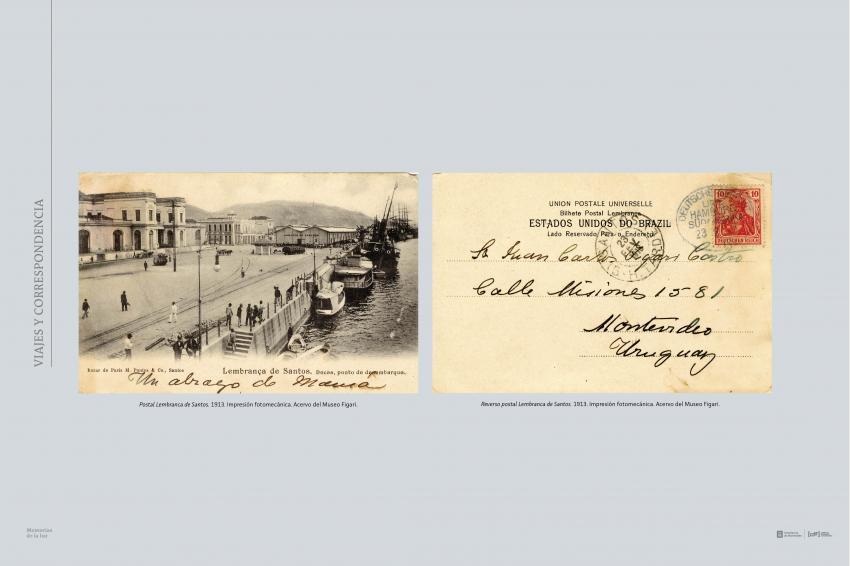 VIAJES Y CORRESPONDENCIA
Bazar de Paris M. Pontes & Co., Santos
Lembrança de Santos. Docas, ponto de desembarque.
Un abrazo de Mamá
Postal Lembranca de Santos. 1913. Impresión fotomecánica. Acervo del Museo Figari.
UNION POSTALE UNIVERSELLE
Bilhete Postal Lembrança
ESTADOS UNIDOS DO BRAZIL
Lado Reservado Para o Endereto
10 10
DEUTSCHES REICH
Sr Juan Carlos Figari Castro
Calle Misiones 1581
Montevideo
Uruguay
Reverso postal Lembranca de Santos. 1913. Impresión fotomecánica. Acervo del Museo Figari.
Memorias
de la luz